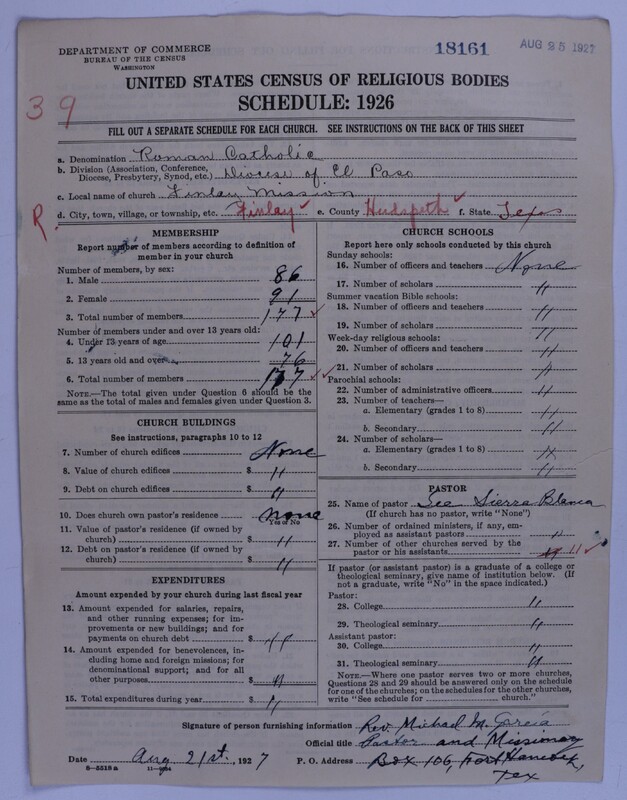 DEPARTMENT OF COMMERCE
BUREAU OF THE CENSUS
WASHINGTON
18161
AUG 25 1927
39
UNITED STATES CENSUS OF RELIGIOUS BODIES
SCHEDULE: 1926
FILL OUT A SEPARATE SCHEDULE FOR EACH CHURCH. SEE INSTRUCTIONS ON THE BACK OF THIS SHEET
a. Denomination Roman Catholic
b. Division (Association, Conference, Diocese, Presbytery, Synod, etc.) Diocese of El Paso
c. Local name of church Finlay Mission
R. d. City, town, village, or township, etc. Finlay e. County Hudspeth f. State Texas
MEMBERSHIP
Report number of members according to definition of
member in your church
Number of members, by sex:
1. Male 86
2. Female 91
3. Total number of members 177
Number of members under and over 13 years old:
4. Under 13 years of age 101
5. 13 years old and over 76
6. Total number of members 177
NOTE.—The total given under Question 6 should be
the same as the total of males and females given under Question 3.
CHURCH BUILDINGS
See instructions, paragraphs 10 to 12
7. Number of church edifices None
8. Value of church edifices $ "
9. Debt on church edifices $ "
10. Does church own pastor's residence none
Yes or No
11. Value of pastor's residence (if owned by
church) $ "
12. Debt on pastor's residence (if owned by
church) $ "
EXPENDITURES
Amount expended by your church during last fiscal year
13. Amount expended for salaries, repairs,
and other running expenses; for im-
provements or new buildings; and for
payments on church debt $ "
14. Amount expended for benevolences, in-
cluding home and foreign missions; for
denominational support; and for all
other purposes $ "
15. Total expenditures during year $ "
CHURCH SCHOOLS
Report here only schools conducted by this church
Sunday schools:
16. Number of officers and teachers None
17. Number of scholars "
Summer vacation Bible schools:
18. Number of officers and teachers "
19. Number of scholars "
Week-day religious schools:
20. Number of officers and teachers "
21. Number of scholars "
Parochial schools:
22. Number of administrative officers "
23. Number of teachers—
a. Elementary (grades 1 to 8) "
b. Secondary "
24. Number of scholars—
a. Elementary (grades 1 to 8) "
b. Secondary "
PASTOR
25. Name of pastor See Sierra Blanca
(If church has no pastor, write "None")
26. Number of ordained ministers, if any, em-
ployed as assistant pastors "
27. Number of other churches served by the
pastor or his assistants 11
If pastor (or assistant pastor) is a graduate of a college or
theological seminary, give name of institution below. (If
not a graduate, write "No" in the space indicated.)
Pastor:
28. College "
29. Theological seminary "
Assistant pastor:
30. College "
31. Theological seminary "
NOTE.—Where one pastor serves two or more churches,
Questions 28 and 29 should be answered only on the schedule
for one of the churches; on the schedules for the other churches,
write "See schedule for church."
Signature of person furnishing information Rev. Michael M. Garcia
Official title Pastor and Missionary
Date Aug 21st, 1927 P. O. Address Box 106, Fort Hancock,
Tex
8-5518a